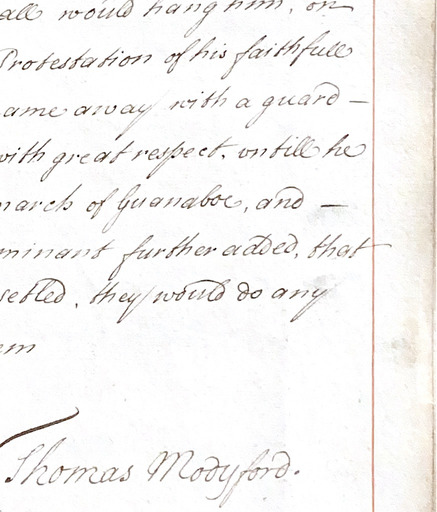 all would hang him, on
Protestation of his faithfull
ame away with a guard —
with great respect, untill he
march of Guanaboe, and —
minant further added, that
settled, they would do any
em
Thomas Modyford.